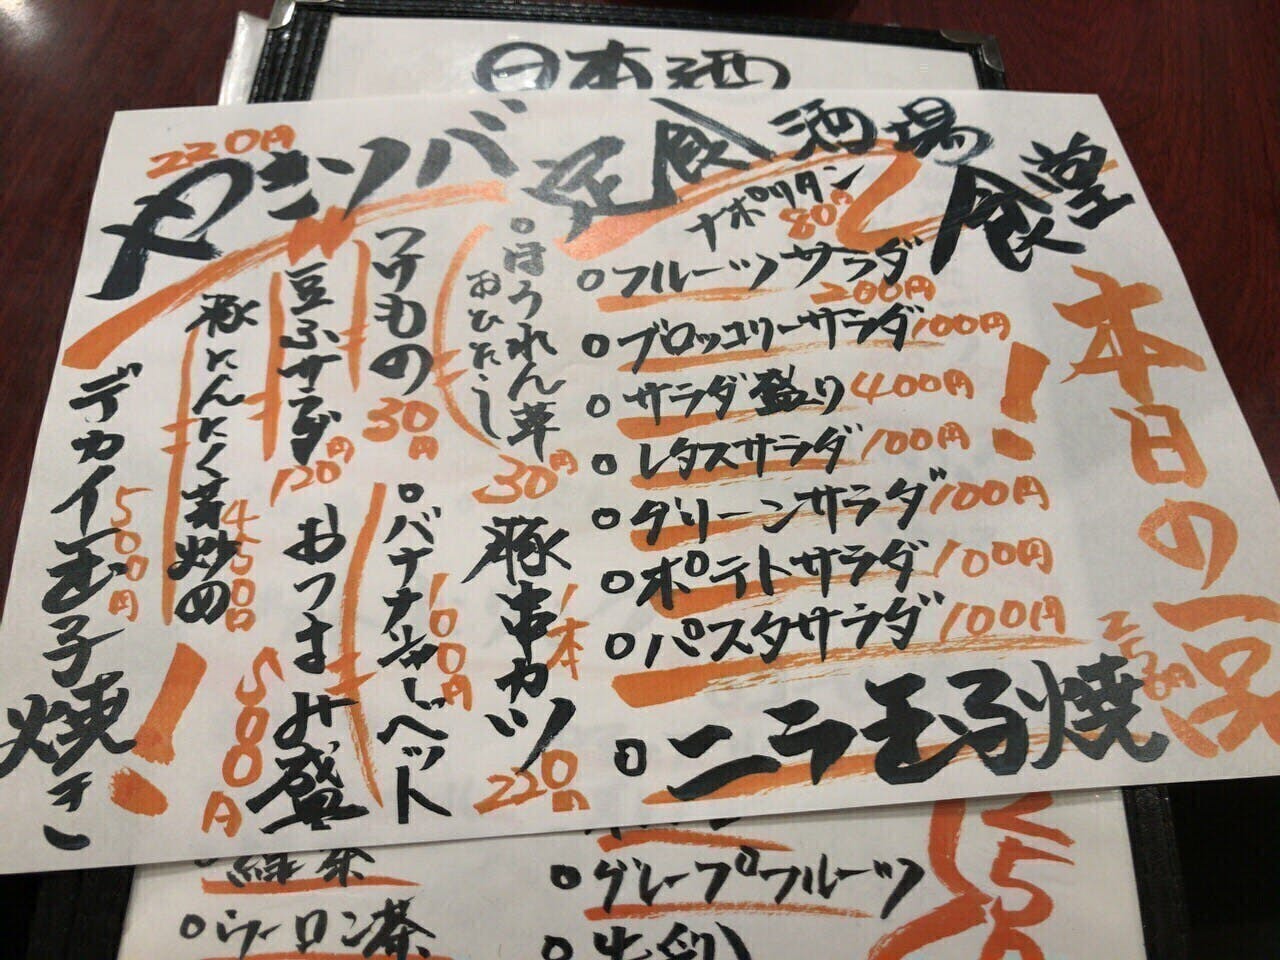 日本酒
定食酒場食堂
本日の一品
!
ナポリタン
80円
フルーツサラダ
200円
ブロッコリーサラダ 100円
サラダ盛り 400円
レタスサラダ 100円
グリーンサラダ 100円
ポテトサラダ 100円
パスタサラダ 100円
ニラ玉子焼
250円
ほうれん草
おひたし
30円
豚串カツ
1本
220円
つけもの
30円
バナナシャーベット
100円
豆ふサラダ
120円
おつまみ盛
500円
やきソバ
220円
豚にんにく芽炒め
450円
デカイ玉子焼き
500円
!
緑茶
ウーロン茶
グレープフルーツ